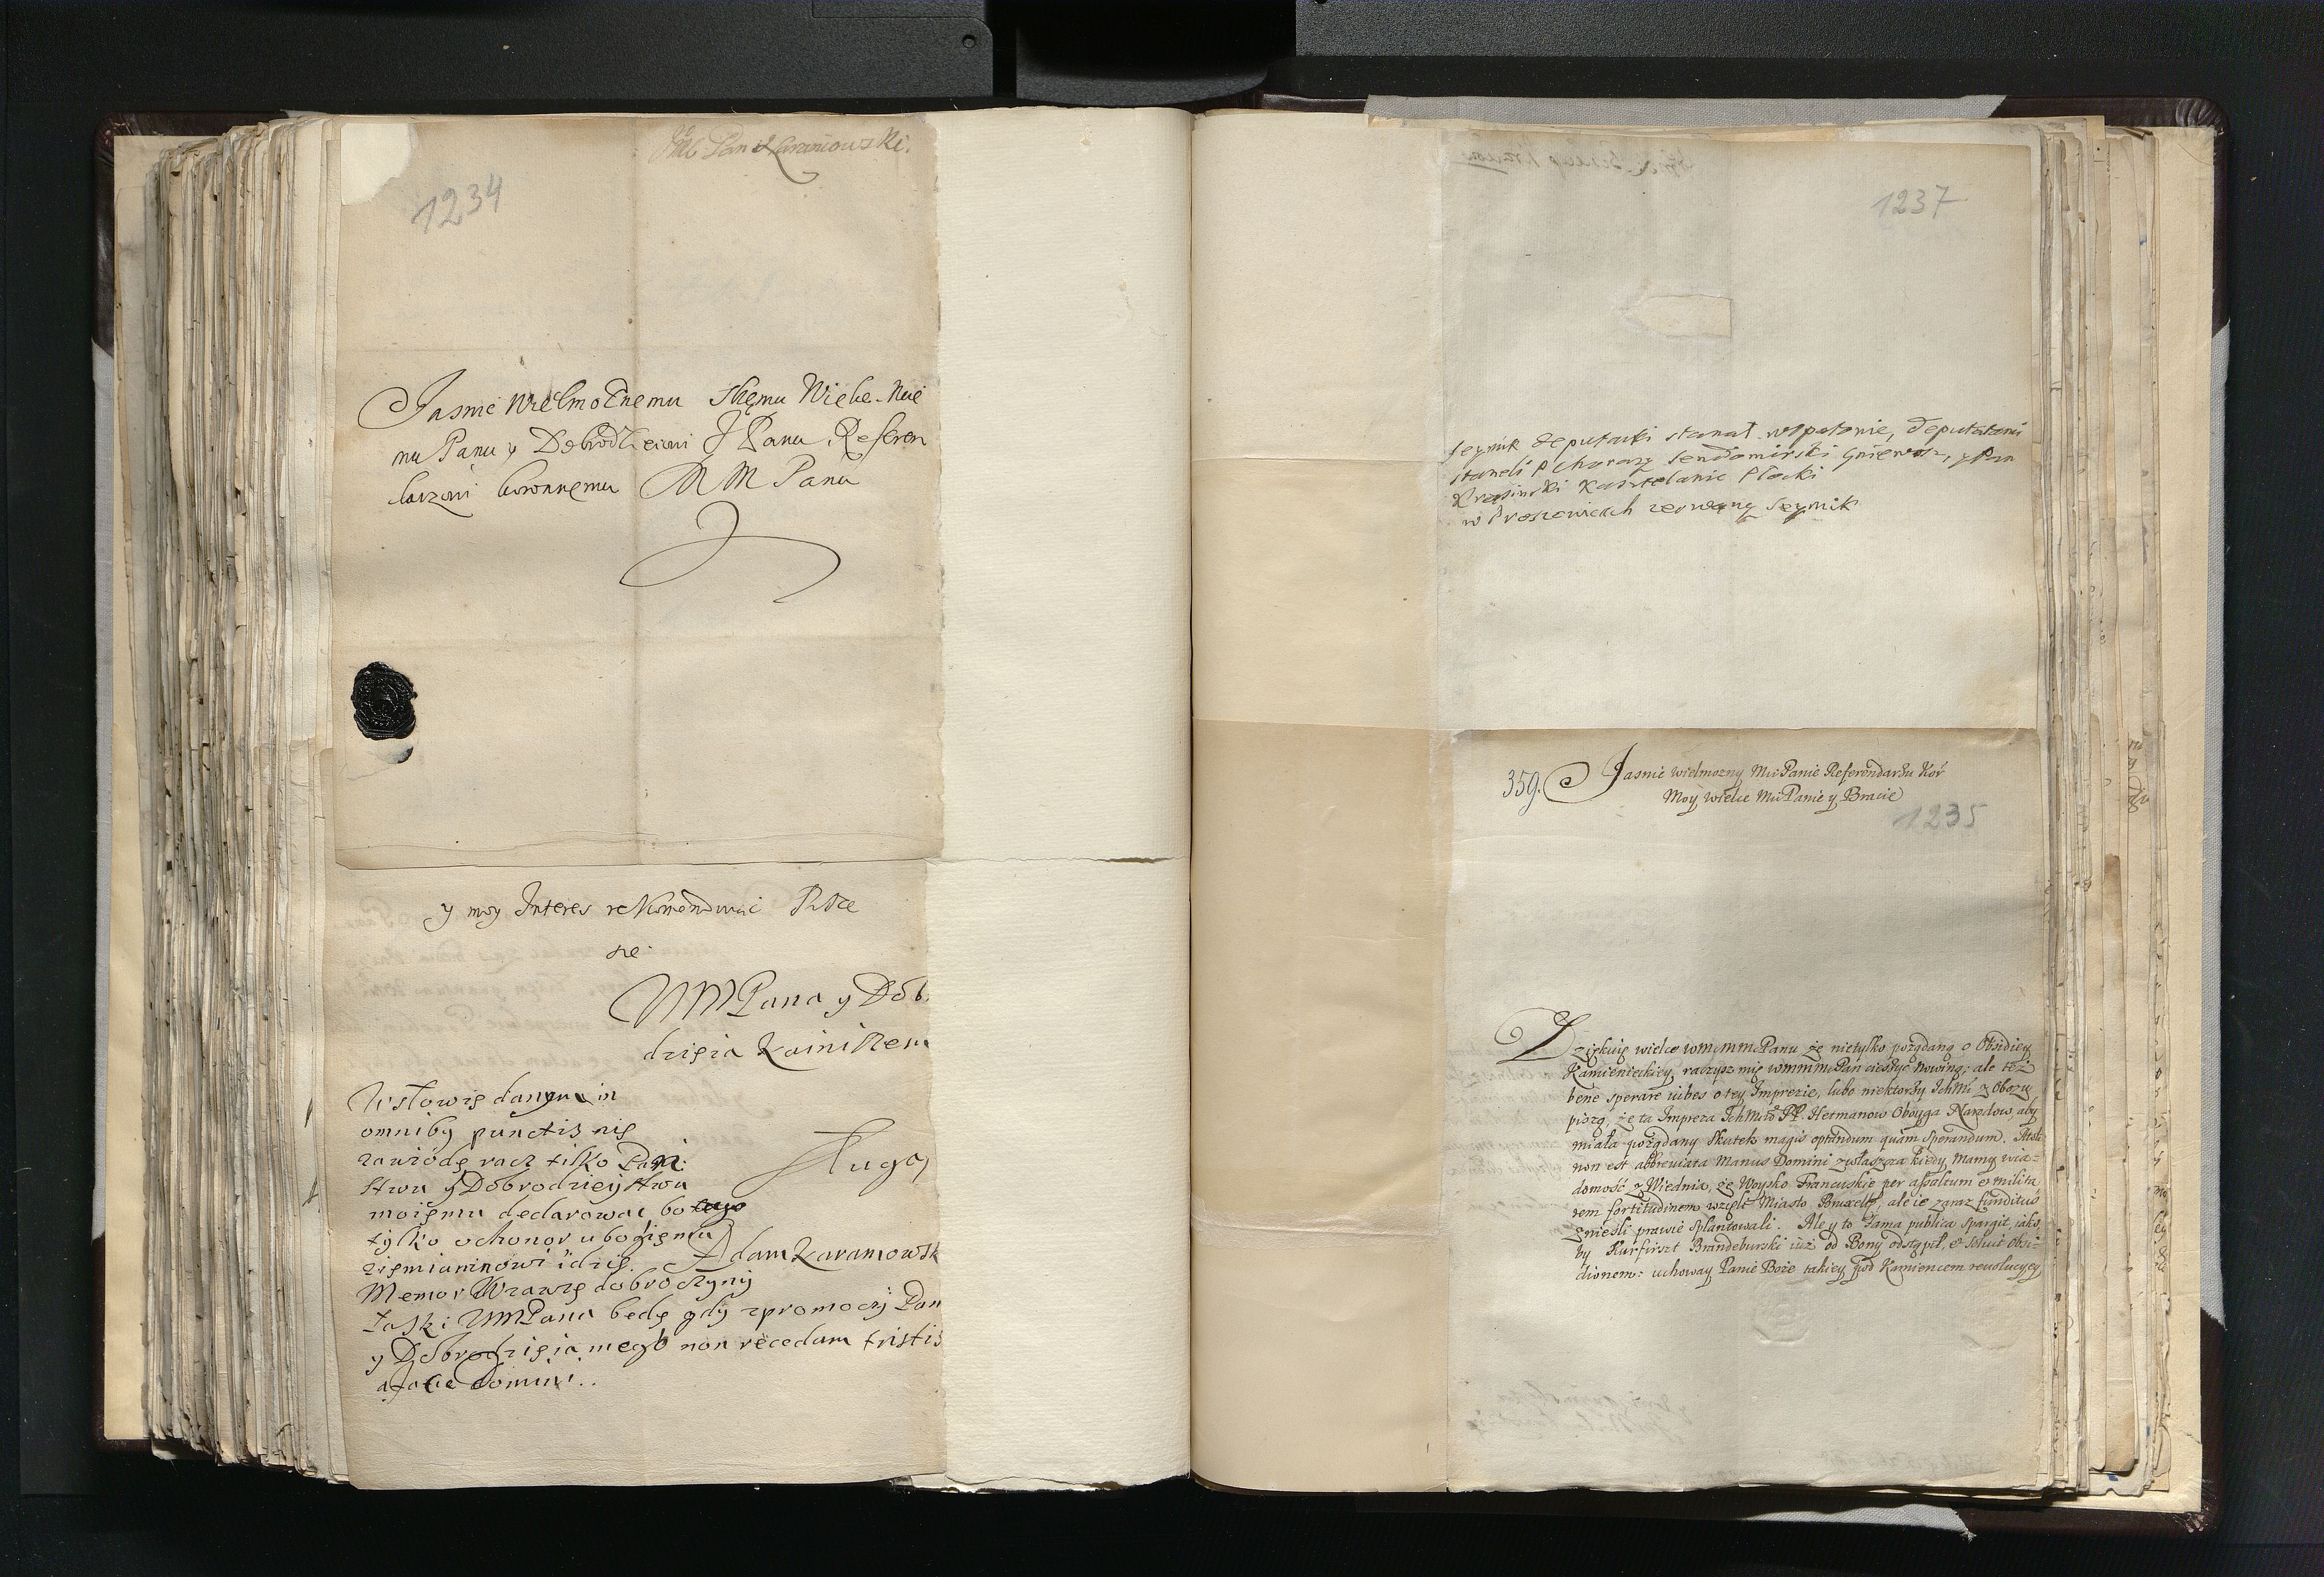 JMć Pan Karaniowski.
1234
Jasnie Wielmożnemu Memu Wielce Mći
mu Panu y Dobrodzieiowi J Panu Referen
darzowi koronnemu M M Panu
y moy Interes rekomendować
sie
WMPana y Dob
dzieia
Wstowie danym in
omnibq punctis nie
zawiode racz tilko Pan
stwu y Dobrodzieystwu
moiemu declarowac bo
tylko o honor ubogiemu
ziemianinowi idzie.
Sługa
Adam Karaniowsk
Memor Wzawze dobroczyny
łaski WMPana bede gdy z promociy Pan
y Dobrodzieia mego non recedam tristis
a facie Domini..
1237
Seymik deputacki stanał w Opatowie, deputatami
staneli P Chorazy Sendomirski Gniewosz, y Pan
Krasinski Kasztelanic Płocki
w Proszowicach zerwany Seymik
359. Jasnie wielmozny Mći Panie Referendarżu Kor
Moy wielce Mći Panie y Bracie
1235
Dziękuię wielce wmmmPanu że nietylko pożądaną o Obsidiey
Kamienieckiey raczysz mię wmmmPan cieszyć Nowiną; ale też
bene sperare iubes o tey Imprezie, lubo niektorży IchMć z Obozu
piszą, że ta Impreza IchMćiow PP. Hetmanow Oboyga Narodow, aby
miała pożądany Skutek magis optandum quàm sperandum. Atoli
non est abbreviata Manus Domini zwłaszcza kiedy mamy wia-
domość z Wiednia, że Woysko Francuskie per assaltum et milita
rem fortitudinem wzieli Miasto Bruxelles, ale ie zaraz funditus
znieśli prawie splantowali. Ale y to Fama publica spargit, iako,
by Kurfirszt Brandeburski iuż od Bony odstąpił, et solvit Obsi-
dionem: uchoway Panie Boże takiey pod Kamiencem revolucyey